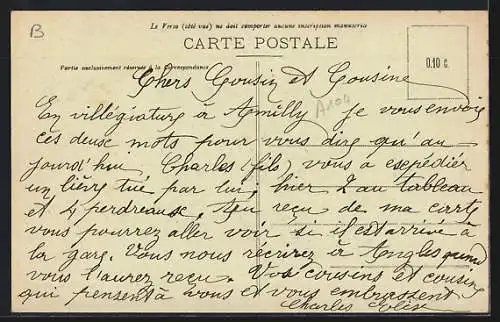 B
Le Verso (côté vue) ne doit comporter aucune inscription manuscrite
CARTE POSTALE
Partie exclusivement réservée à la Correspondance
0.10 c.
Chers Cousin et Cousine
En villégiature à Amilly je vous envoie
ces deux mots pour vous dire qu'au
jourd'hui Charles (fils) vous a expédier
un lièvre tué par lui, hier 2 au tableau
et 4 perdreaux. Au reçu de ma carte
vous pourrez aller voir si il est arrivé à
la gare. Vous nous recrirez à quand
vous l'aurez reçu. Vos cousins et cousine
qui pensent à vous et vous embrassent
Charles